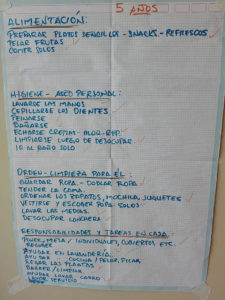 5 AÑOS
ALIMENTACIÓN:
PREPARAR PLATOS SENCILLOS - SNACKS - REFRESCOS
PELAR FRUTAS
COMER SOLOS
HIGIENE - ASEO PERSONAL:
LAVARSE LAS MANOS
CEPILLARSE LOS DIENTES
PEINARSE
BAÑARSE
ECHARSE CREMA - BLOQ -
LIMPIARSE LUEGO DE DESOCUPAR
IR AL BAÑO SOLO
ORDEN - LIMPIEZA POR EL:
GUARDAR ROPA - DOBLAR ROPA
TENDER LA CAMA
ORDENAR LOS ZAPATOS, MOCHILA, JUGUETES
VESTIRSE Y ESCOGER ROPA SOLOS
LAVAR LAS MEDIAS
DESOCUPAR LONCHERA
RESPONSABILIDADES Y TAREAS EN CASA:
PONER MESA / INDIVIDUALES, CUBIERTOS ETC.
RECOGER
AYUDAR EN LAVANDERÍA
AYUDAR COCINA / PELAR, PICAR
REGAR LAS PLANTAS
BARRER / LIMPIAR
AYUDAR LAVAR CARRO
SERVICIO